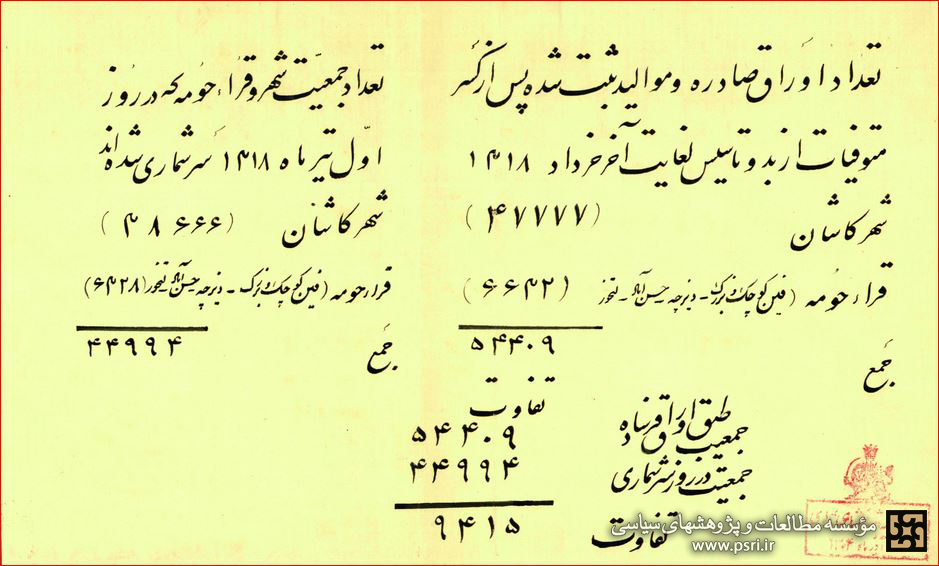 تعداد اوراق صادره و موالید ثبت شده پس از کسر
متوفیات از بدو تاسیس لغایت آخر خرداد ۱۳۱۸
شهر کاشان (۴۷۷۷۷)
قراء حومه (فین کوچک و بزرگ - دیزچه حسن آباد - (۶۶۳۲)
جمع ۵۴۴۰۹
تعداد جمعیّت شهر و قراء حومه که در روز
اوّل تیر ماه ۱۳۱۸ سرشماری شده‌اند
شهر کاشان (۳۸۶۶۶)
قراء حومه (فین کوچک و بزرگ - دیزچه حسن آباد (۶۳۲۸)
جمع ۴۴۹۹۴
تفاوت
جمعیت طبق اوراق و قرناه ۵۴۴۰۹
جمعیت در روز سرشماری ۴۴۹۹۴
تفاوت ۹۴۱۵
مؤسسه مطالعات و پژوهشهای سیاسی
www.psri.ir